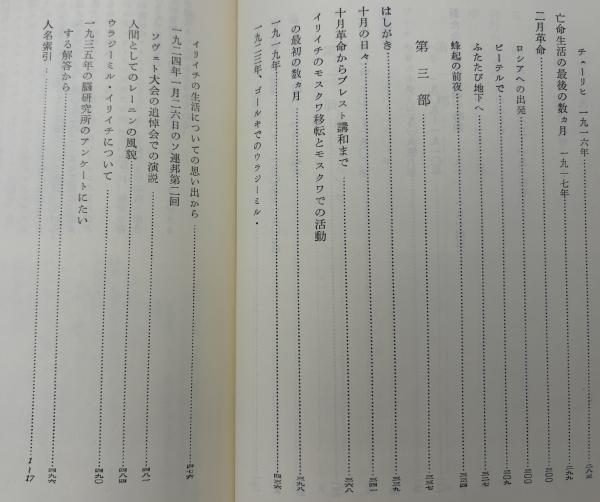 チューリヒ 一九一六年……二八三
亡命生活の最後の数ヵ月 一九一七年……二九九
二月革命……三〇〇
ロシアへの出発……三〇〇
ピーテルで……三〇九
ふたたび地下へ……三二七
蜂起の前夜……三三四
第三部……三三七
はしがき……三三九
十月の日々……三四一
十月革命からブレスト講和まで……三六八
イリイチのモスクワ移転とモスクワでの活動
の最初の数ヵ月……三九八
一九一九年……四三六
一九二三年、ゴールキでのウラジーミル・
イリイチの生活についての思い出から……四七六
一九二四年一月二六日のソ連邦第二回
ソヴェト大会の追悼会での演説……四八一
人間としてのレーニンの風貌……四八四
ウラジーミル・イリイチについて……四九〇
一九三五年の脳研究所のアンケートにたい
する解答から……四九六
人名索引……1~17